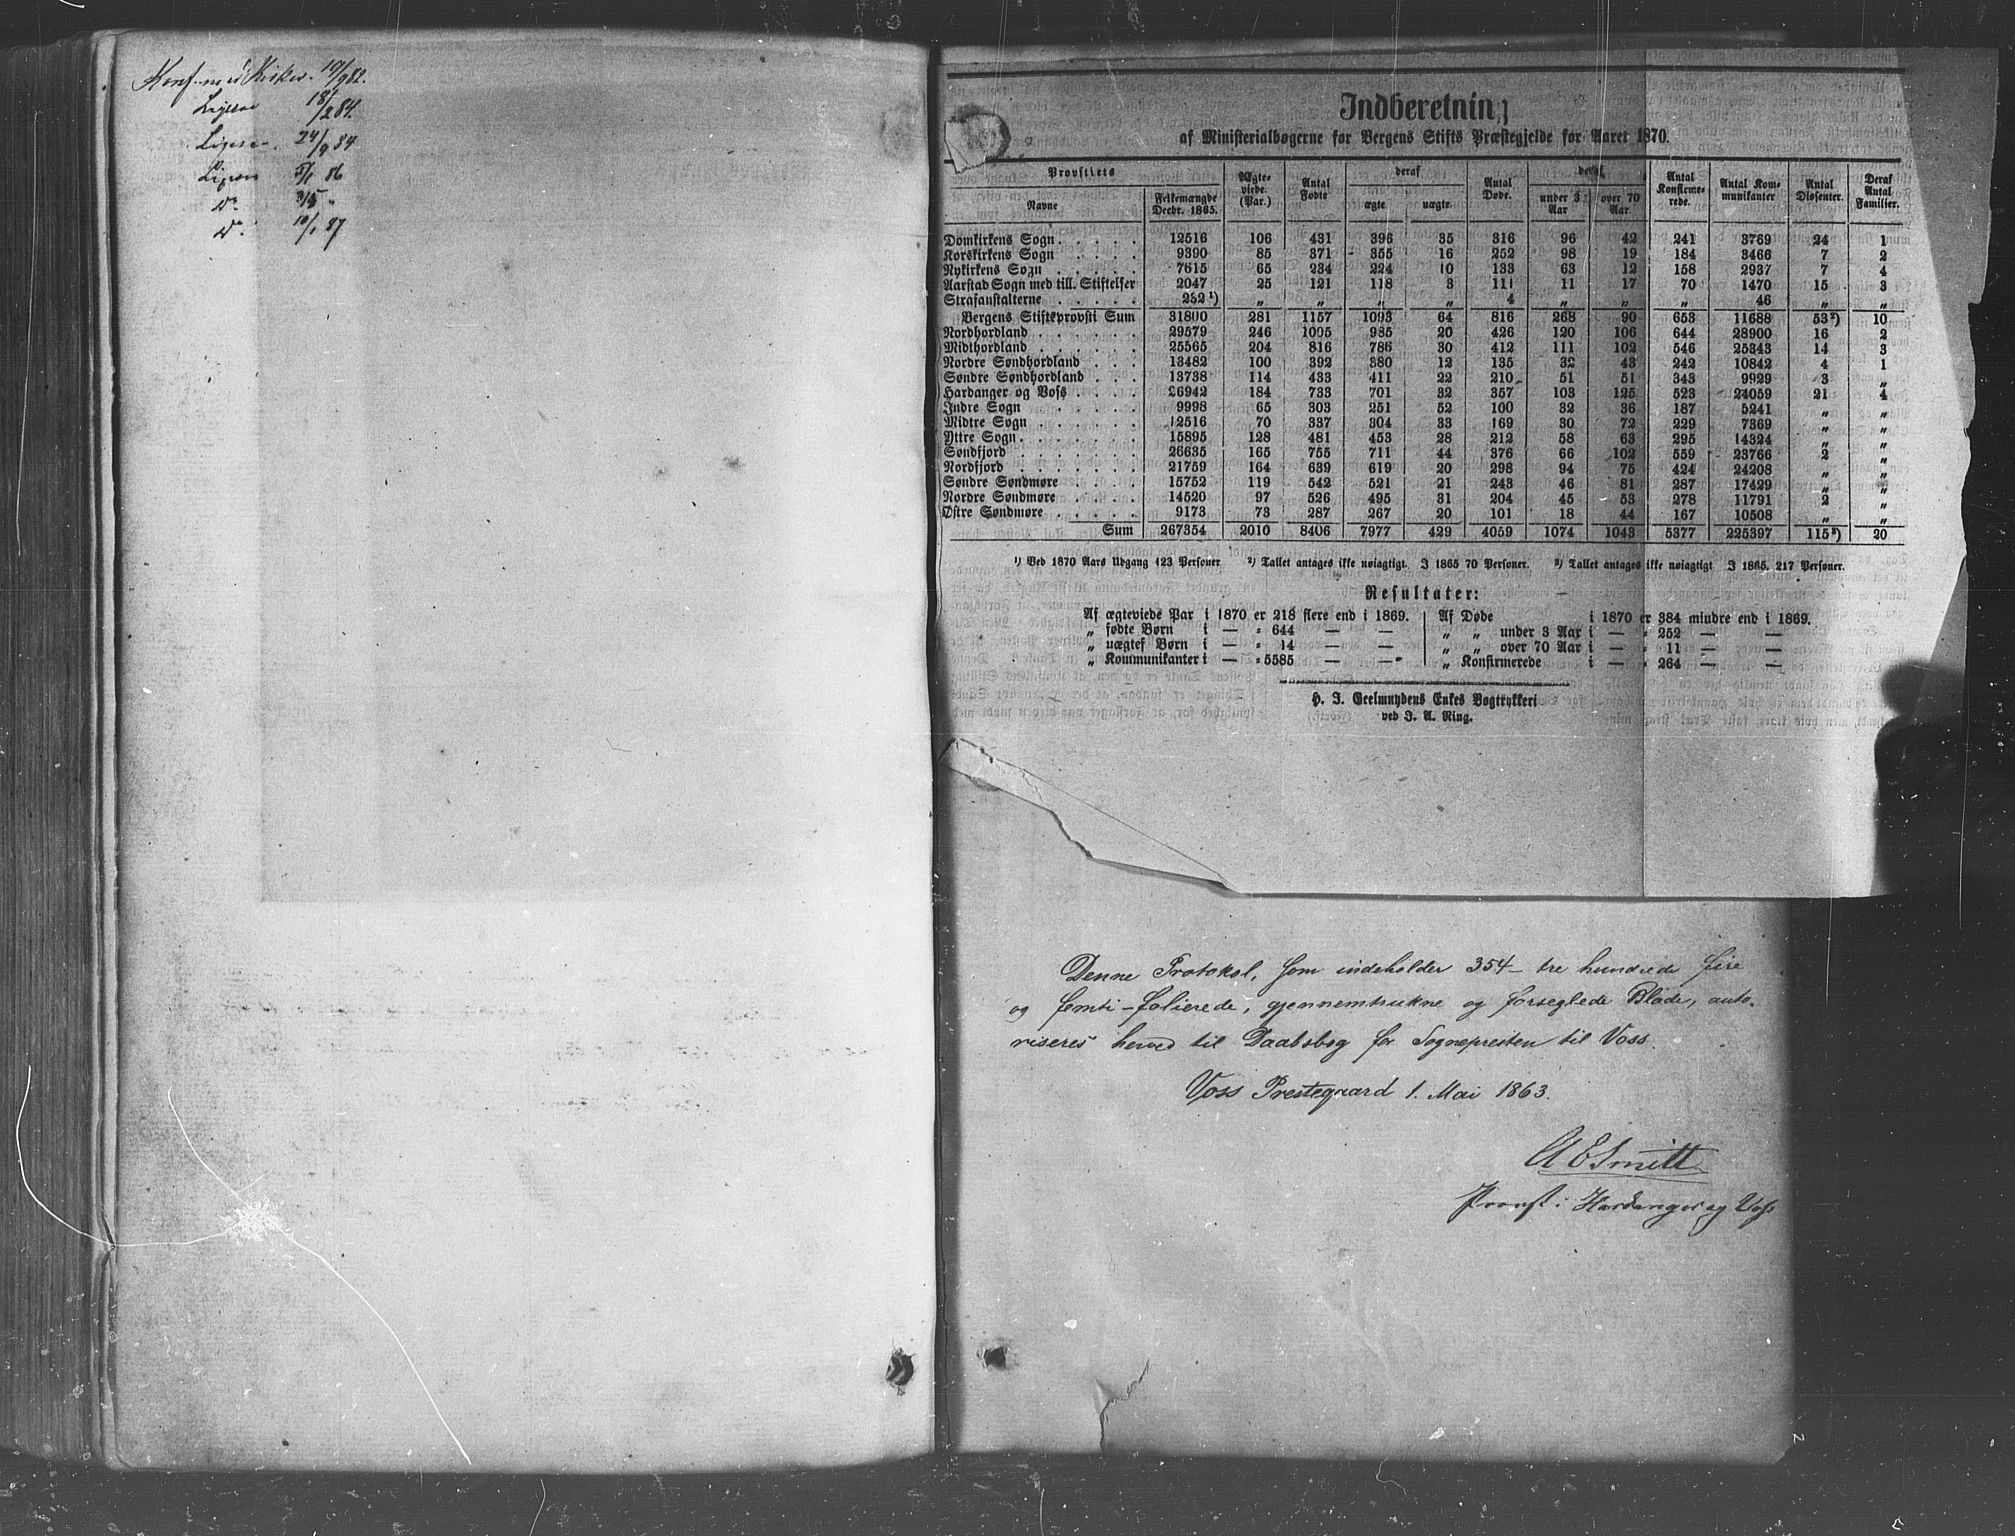 Konf. med Kirkes. 10/9 82.
18/2 84.
24/9 84
5/1 86
Do 3/5 "
Do 10/1 87
Indberetning
af Ministerialbøgerne for Bergens Stifts Præstegjelde for Aaret 1870.
Provstiets Navne | Folkemængde Decbr. 1865. | Ægteviede. (Par.) | Antal Fødte | deraf ægte | uægte | Antal Døde. | deraf under 3 Aar | over 70 Aar | Antal Konfirmerede. | Antal Kommunikanter | Antal Dissenter. | Deraf Antal Familier.
Domkirkens Sogn . . . . . 12516 106 431 396 35 316 96 42 241 3769 24 1
Korskirkens Sogn . . . . 9390 85 371 355 16 252 98 19 184 3466 7 2
Nykirkens Sogn . . . . . 7615 65 234 224 10 133 63 12 158 2937 7 4
Aarstad Sogn med till. Stiftelser 2047 25 121 118 3 111 11 17 70 1470 15 3
Strafanstalterne . . . . . 232 ¹) „ „ „ „ 4 „ „ „ 46 „ „
Bergens Stiftsprovsti Sum 31800 281 1157 1093 64 816 268 90 653 11688 53²) 10
Nordhordland . . . . . . 29579 246 1005 985 20 426 120 106 644 28900 16 2
Midthordland . . . . . . 25565 204 816 786 30 412 111 102 546 25343 14 3
Nordre Søndhordland . . . 13482 100 392 380 12 135 32 43 242 10842 4 1
Søndre Søndhordland . . . 13738 114 433 411 22 210 51 51 343 9929 3 „
Hardanger og Voss . . . . 26942 184 733 701 32 357 103 125 523 24059 21 4
Indre Sogn . . . . . . 9998 65 303 251 52 100 32 36 187 5241 „ „
Midtre Sogn . . . . . . 12516 70 337 304 33 169 30 72 229 7369 „ „
Yttre Sogn . . . . . . . 15895 128 481 453 28 212 58 63 295 14324 „ „
Søndfjord . . . . . . . 26635 165 755 711 44 376 66 102 559 23766 2 „
Nordfjord . . . . . . . 21759 164 639 619 20 298 94 75 424 24208 „ „
Søndre Søndmøre . . . . 15752 119 542 521 21 243 46 81 287 17429 „ „
Nordre Søndmøre . . . . 14520 97 526 495 31 204 45 53 278 11791 2 „
Østre Søndmøre . . . . . 9173 73 287 267 20 101 18 44 167 10508 „ „
Sum 267354 2010 8406 7977 429 4059 1074 1043 5377 225397 115³) 20
¹) Ved 1870 Aars Udgang 123 Personer ²) Tallet antages ikke nøiagtigt. I 1865 70 Personer. ³) Tallet antages ikke nøiagtigt I 1865. 217 Personer.
Resultater:
Af ægteviede Par i 1870 er 218 flere end i 1869. | Af Døde i 1870 er 384 mindre end i 1869.
„ fødte Børn i — „ 644 — — | „ „ under 3 Aar i — „ 252 — —
„ uægtef Børn i — „ 14 — — | „ „ over 70 Aar i — „ 11 — —
„ Kommunikanter i — „ 5585 — — | „ Konfirmerede i — „ 264 — —
H. J. Geelmuydens Enkes Bogtrykkeri
ved J. A. Ring.
Denne Protokol, som indeholder 354 – tre hundrede fire
og femti – folierede, gjennemtrukne og forseglede Blade, auto-
riseres herved til Daabsbog for Sognepresten til Voss.
Voss Prestegaard 1. Mai 1863.
A E Smitt
Provst i Hardanger og Voss